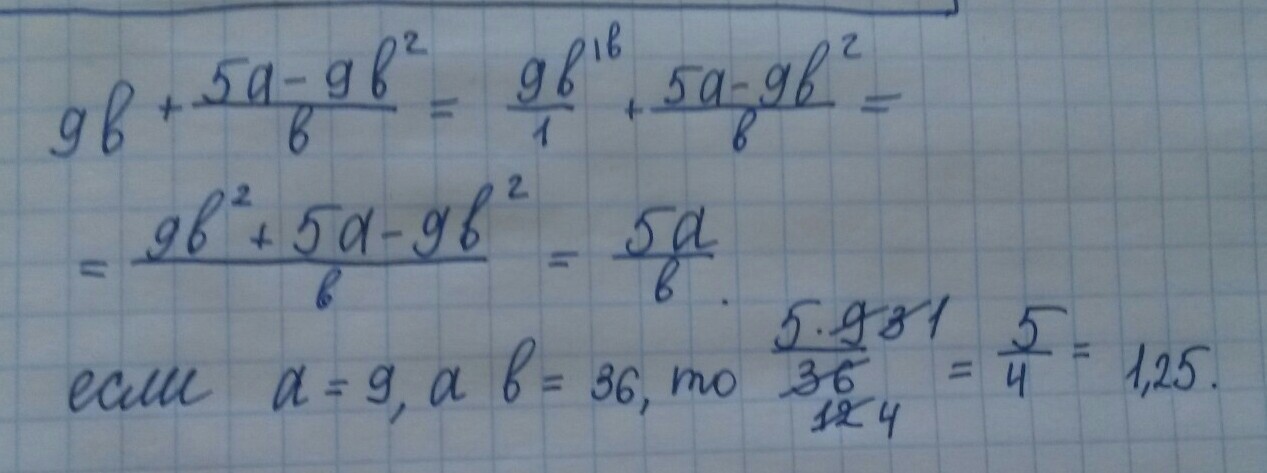 9в + (5а - 9в²)/в = 9в^(1в)/1 + (5а - 9в²)/в =
= (9в² + 5а - 9в²)/в = 5а/в.
если а = 9, а в = 36, то (5 · 9 3 1)/(36 12 4) = 5/4 = 1,25.